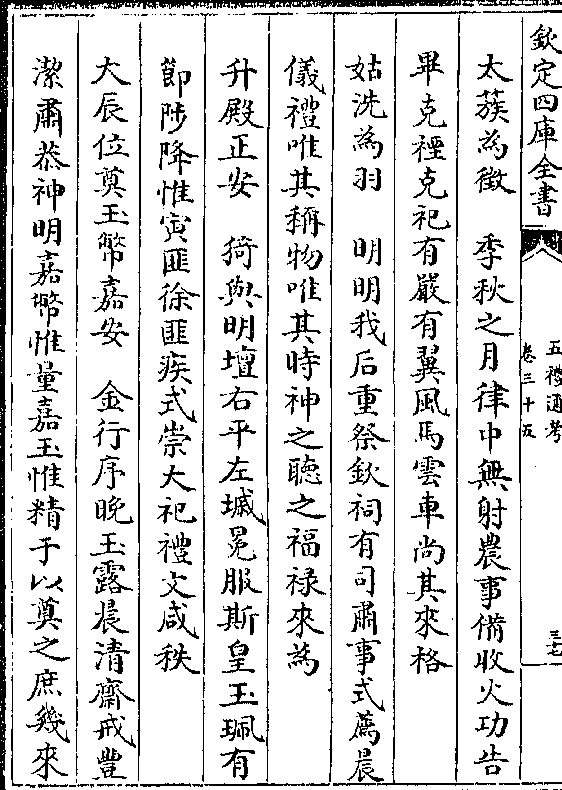 欽定四庫全書
五禮通考
卷三十五
三七
太蔟為徵　季秋之月律中無射農事備收火功告
畢克禋克祀有嚴有翼風馬雲車尚其來格
姑洗為羽　明明我后重祭欽祠有司肅事式薦晨
儀禮唯其稱物唯其時神之聽之福禄來為
升殿正安　猗與明壇右平左墄冕服斯皇玉珮有
節陟降惟寅匪徐匪疾式崇大祀禮文咸秩
大辰位奠玉幣嘉安　金行序晚玉露晨清齋戒豐
潔肅恭神明嘉幣惟量嘉玉惟精于以奠之庶幾來